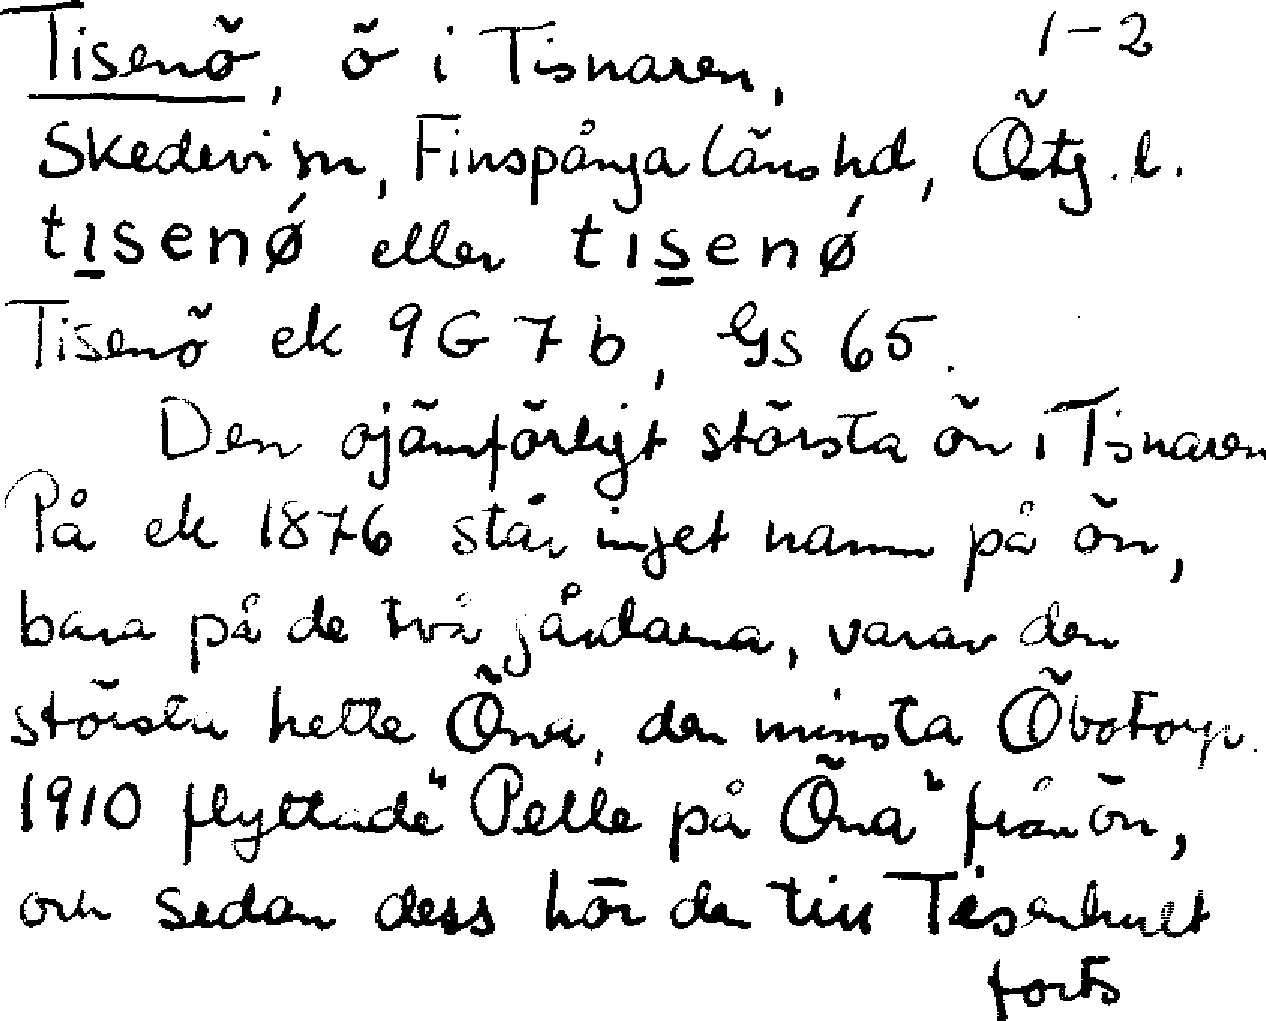 Tisenö, ö i Tisnaren, 1-2
Skedevi sn, Finspånga läns hd, Östg. l.
tısenǿ eller tısenǿ
Tisenö ek 9G 7b, Gs 65.
Den ojämförligt största ön i Tisnaren
På ek 1876 står inget namn på ön,
bara på de två gårdarna, varav den
största hette Öna, den minsta Öbotorp.
1910 flyttade "Pelle på Öna" från ön,
och sedan dess hör den till Tisenhult
forts